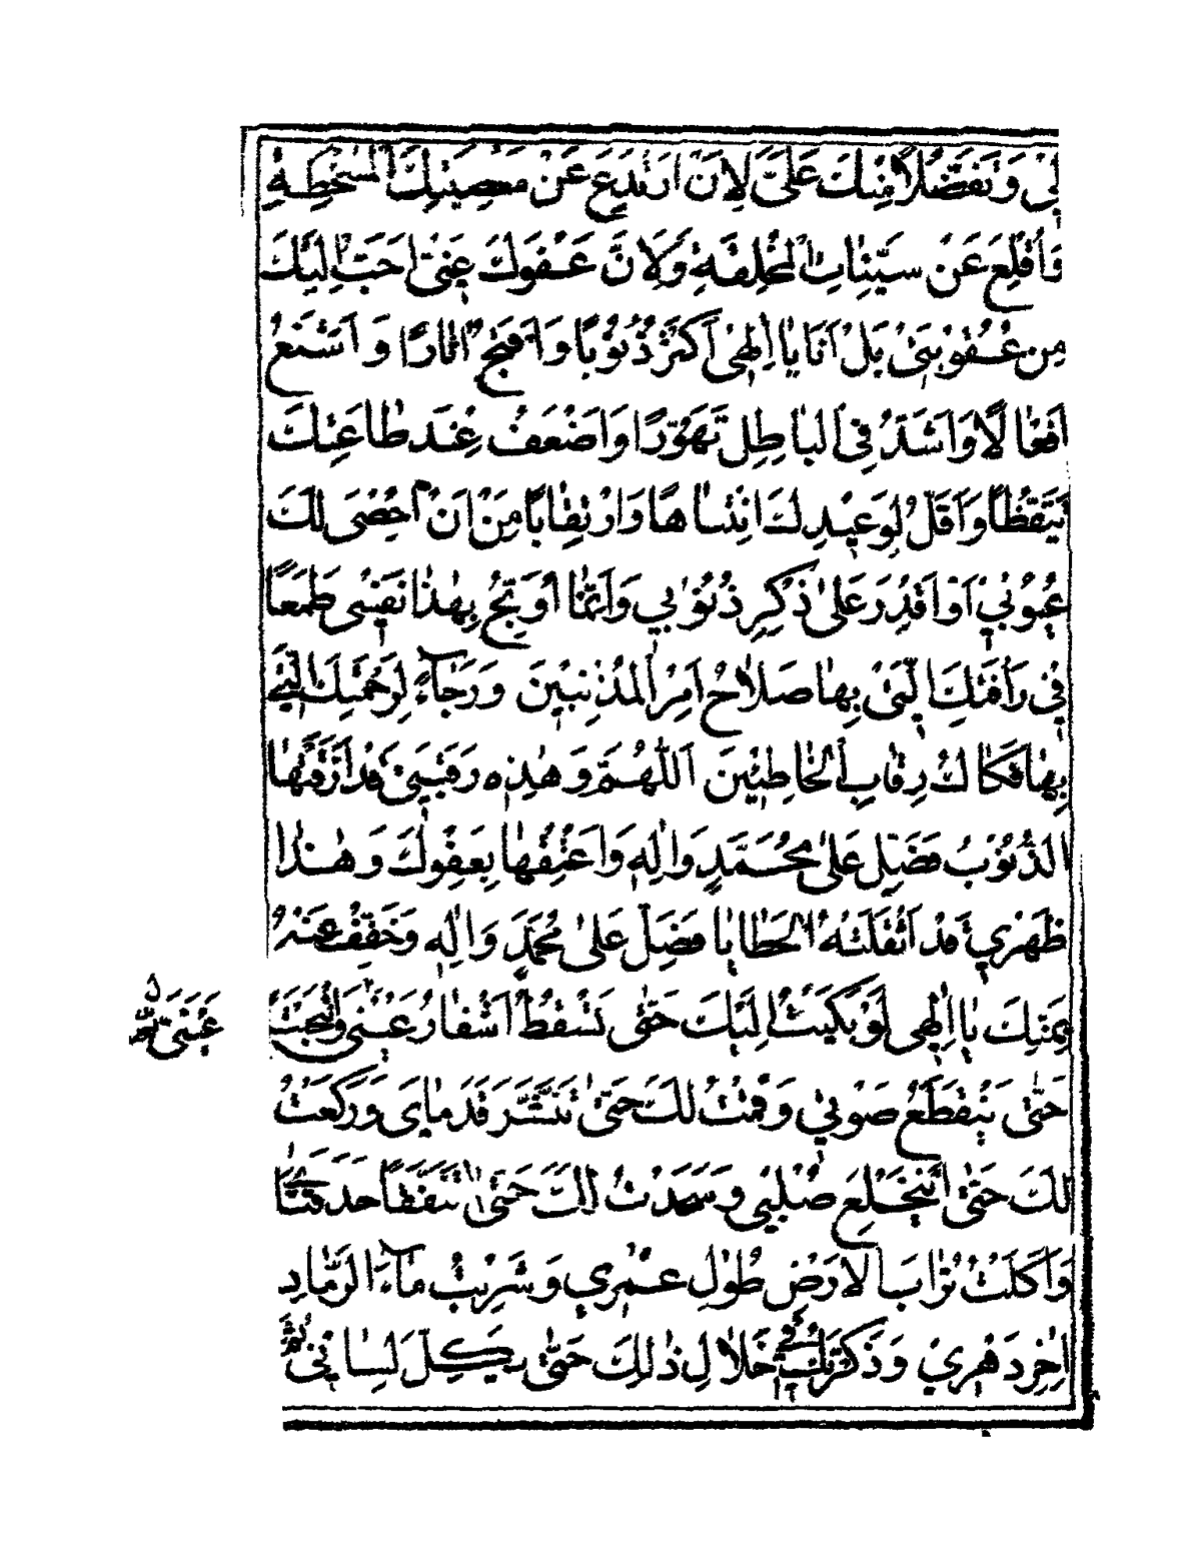 لِي وَتَفَضُّلًا مِنْكَ عَلَيَّ لِاَنْ اَرْتَدِعَ عَنْ مَعْصِيَتِكَ الْمُسْخِطَةِ
وَاُقْلِعَ عَنْ سَيِّئَاتِيَ الْمُخْلِقَةِ وَلِاَنَّ عَفْوَكَ عَنِّي اَحَبُّ اِلَيْكَ
مِنْ عُقُوبَتِي بَلْ اَنَا يَا اِلٰهِي اَكْثَرُ ذُنُوبًا وَاَقْبَحُ اٰثَارًا وَاَشْنَعُ
اَفْعَالًا وَاَشَدُّ فِي الْبَاطِلِ تَهَوُّرًا وَاَضْعَفُ عِنْدَ طَاعَتِكَ
تَيَقُّظًا وَاَقَلُّ لِوَعِيدِكَ انْتِبَاهًا وَارْتِقَابًا مِنْ اَنْ اُحْصِيَ لَكَ
عُيُوبِي اَوْ اَقْدِرَ عَلٰى ذِكْرِ ذُنُوبِي وَاِنَّمَا اُوَبِّخُ بِهٰذَا نَفْسِي طَمَعًا
فِي رَأْفَتِكَ الَّتِي بِهَا صَلَاحُ اَمْرِ الْمُذْنِبِينَ وَرَجَاءً لِرَحْمَتِكَ الَّتِي
بِهَا فَكَاكُ رِقَابِ الْخَاطِئِينَ اَللّٰهُمَّ وَهٰذِهِ رَقَبَتِي قَدْ اَرَقَّتْهَا
الذُّنُوبُ فَصَلِّ عَلٰى مُحَمَّدٍ وَاٰلِهِ وَاَعْتِقْهَا بِعَفْوِكَ وَهٰذَا
ظَهْرِي قَدْ اَثْقَلَتْهُ الْخَطَايَا فَصَلِّ عَلٰى مُحَمَّدٍ وَاٰلِهِ وَخَفِّفْ عَنْهُ
بِمَنِّكَ يَا اِلٰهِي لَوْ بَكَيْتُ اِلَيْكَ حَتّٰى تَسْقُطَ اَشْفَارُ عَيْنَيَّ وَانْتَحَبْتُ
حَتّٰى يَنْقَطِعَ صَوْتِي وَقُمْتُ لَكَ حَتّٰى تَتَنَشَّرَ قَدَمَايَ وَرَكَعْتُ
لَكَ حَتّٰى يَنْخَلِعَ صُلْبِي وَسَجَدْتُ لَكَ حَتّٰى تَتَفَقَّأَ حَدَقَتَايَ
وَاَكَلْتُ تُرَابَ الْاَرْضِ طُولَ عُمْرِي وَشَرِبْتُ مَاءَ الرَّمَادِ
اٰخِرَ دَهْرِي وَذَكَرْتُكَ فِي خِلَالِ ذٰلِكَ حَتّٰى يَكِلَّ لِسَانِي ثُمَّ